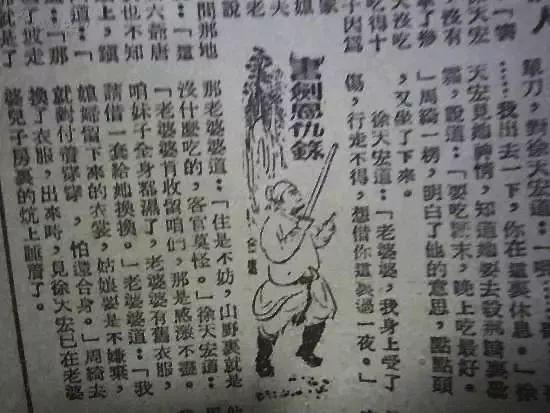 人
徐天宏
沒有
沒吃
吃得十
子因爲
說
間那地
六爺唐
也不知
上，躓
道：「
：「那
了坡走
單刀，對徐天宏道：「
……我出去一下，你在這裏休息。」徐
天宏見她神情，知道她要去殺
霸，說道：「要吃 末，晚上吃最好。
」周綺一楞，明白了他的意思，點點頭
，又坐了下來。
徐天宏道：「老婆婆，我身上受了
傷，行走不得，想借你這裏過一夜。」
書劍恩仇錄
金庸
那老婆婆道：「住是不妨，山野裏就是
沒什麽吃的，客官莫怪。」徐天宏道：
「老婆婆肯收留咱們，那是感激不盡。
咱妹子全身都濕了，老婆婆有舊衣服，
請借一套給她換換。」老婆婆道：「我
媳婦留下來的衣裳，姑娘要是不嫌棄，
就對付着穿穿，怕還合身。」周綺去
換了衣服，出來時，見徐天宏已在老婆
婆兒子房裏的炕上睡着了。